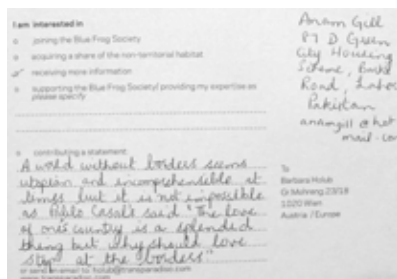 I am interested in
joining the Blue Frog Society
acquiring a share of the non-territorial habitat
receiving more information
supporting the Blue Frog Society/ providing my expertise as
please specify
contributing a statement:
A world without borders seems
utopian and incomprehensible at
times but it is not impossible
as Pablo Casals said "The love
of one's country is a splendid
thing but why should love
stop at the borders"
or send an email to: holub@transparadiso.com
Anam Gill
D Green
City Housing
Scheme,
Road, Lahore
Pakistan
anamgill@hot
mail.com
To
Barbara Holub
Gr.Mohreng. 23/18
1020 Wien
Austria / Europe